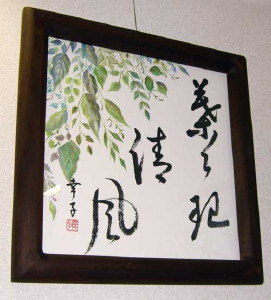 葉々起
清
風
幸子